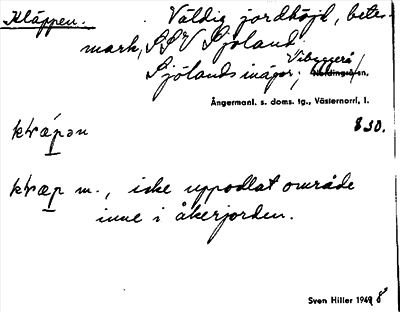 Kläppen. Väldig jordhöjd, betes-
mark, SSV Sjöland.
Sjölands inägor; Vibyggerå
Ångermanl. s. doms. tg., Västernorrl. l.
830.
kḷæ̀pən
kḷæp m., icke uppodlat område
inne i åkerjorden.
Sven Hiller 1948